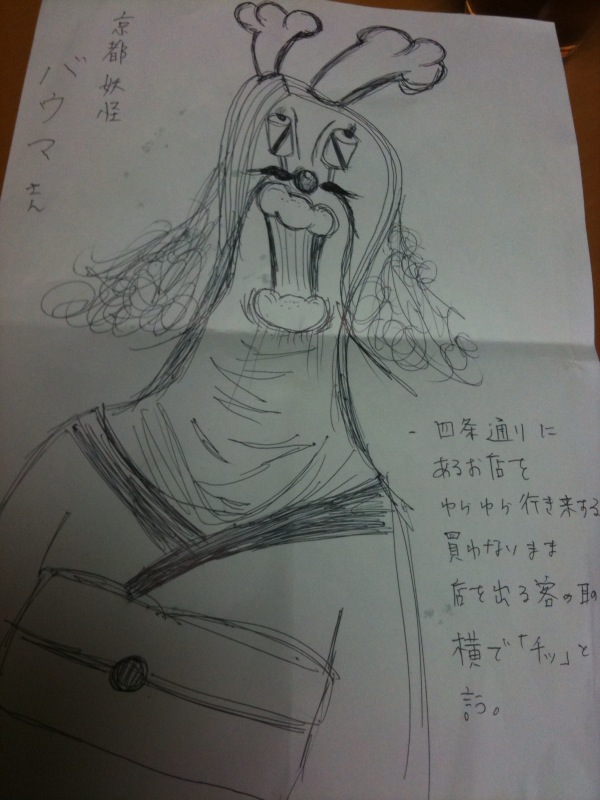 京都妖怪
バウマさん
- 四条通りに
あるお店を
ゆけゆけ行き来する
買わないまま
店を出る客の耳の
横で「チッ」と
言う。